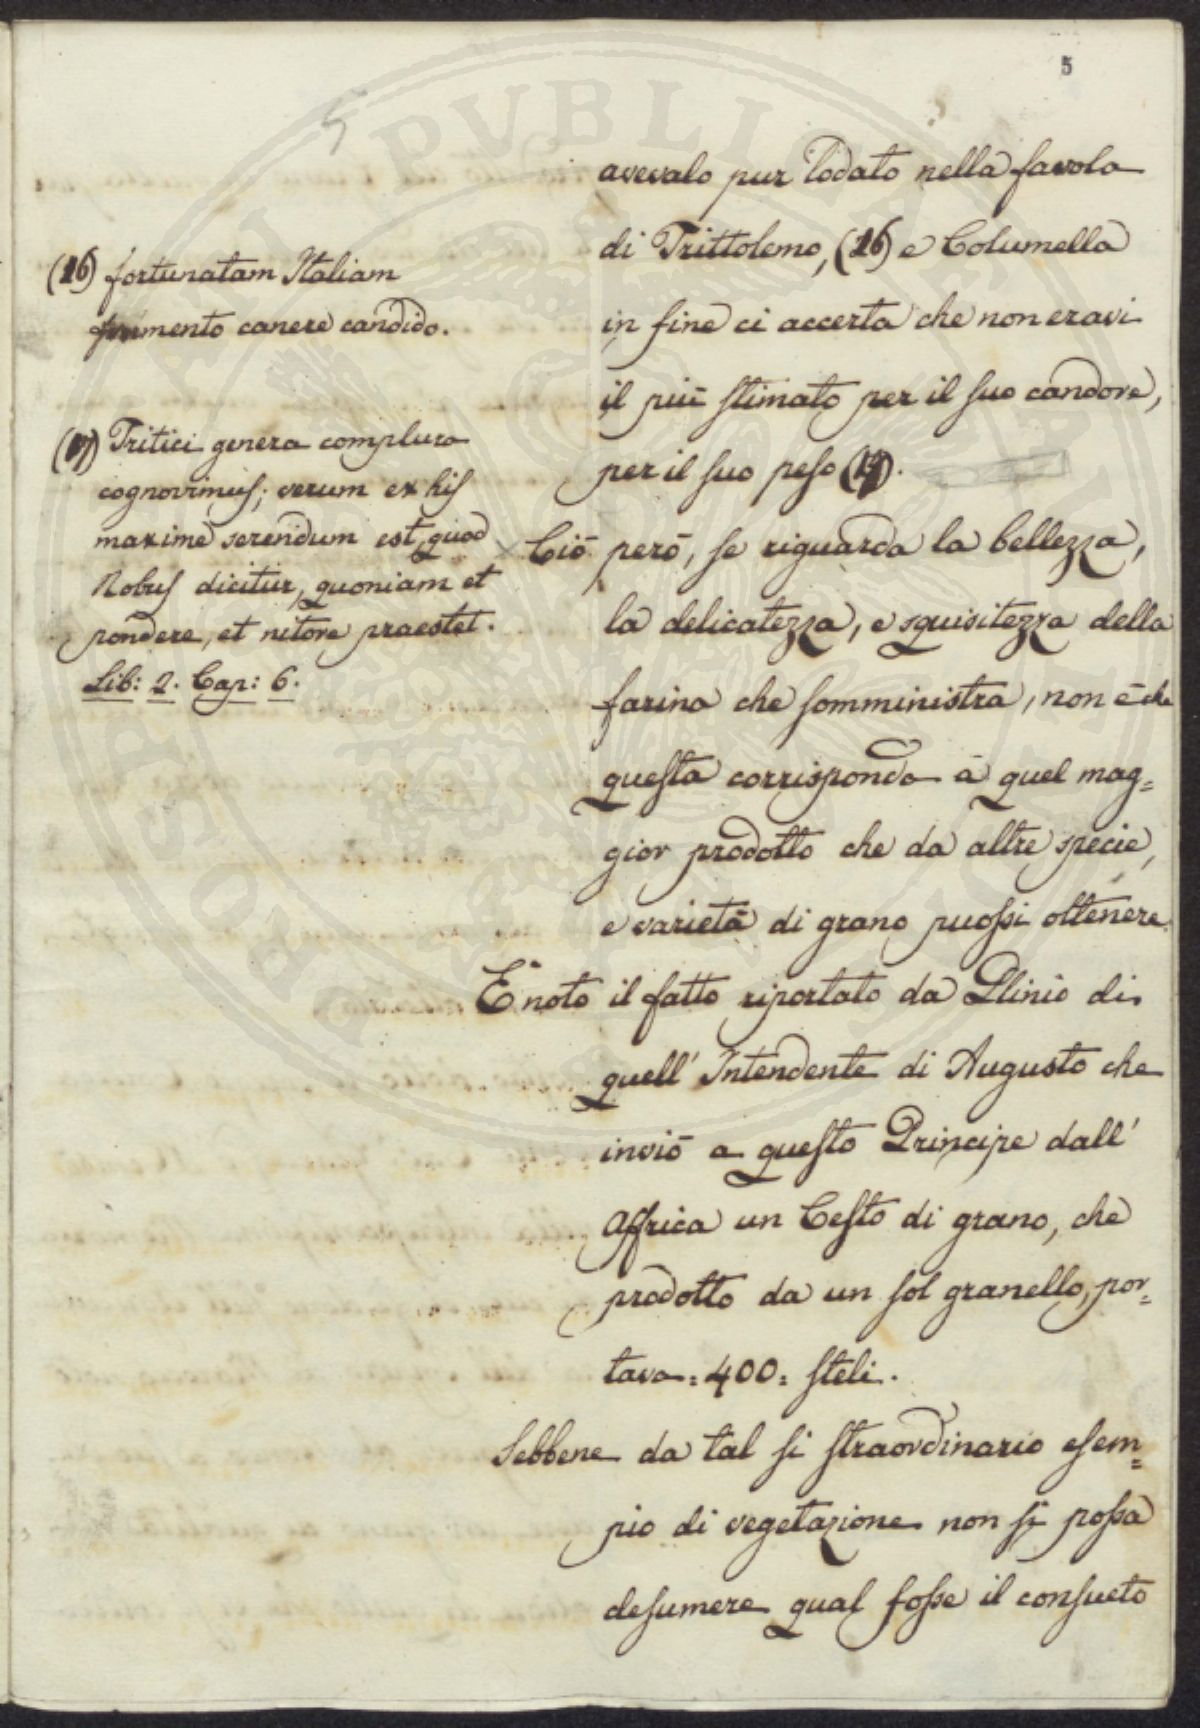 5
5
avevalo pur lodato nella favola
di Trittolemo, (16) e Columella
in fine ci accerta che non eravi
il più stimato per il suo candore,
per il suo peso (17).
Ciò però, se riguarda la bellezza,
la delicatezza, e squisitezza della
farina che somministra, non è che
questa corrisponda à quel mag=
gior prodotto che da altre specie,
e varietà di grano puossi ottenere.
È noto il fatto riportato da Plinio di
quell' Intendente di Augusto che
inviò a questo Principe dall'
Affrica un Cesto di grano, che
prodotto da un sol granello, por=
tava = 400 = steli.
Sebbene da tal si straordinario esem=
pio di vegetazione non si possa
desumere qual fosse il consueto
(16) fortunatam Italiam
frumento canere candido.
(17) Tritici genera complura
cognovimus; verum ex his
maxime serendum est, quod
Robus dicitur, quoniam et
pondere, et nitore praestet.
Lib: 2. Cap: 6.